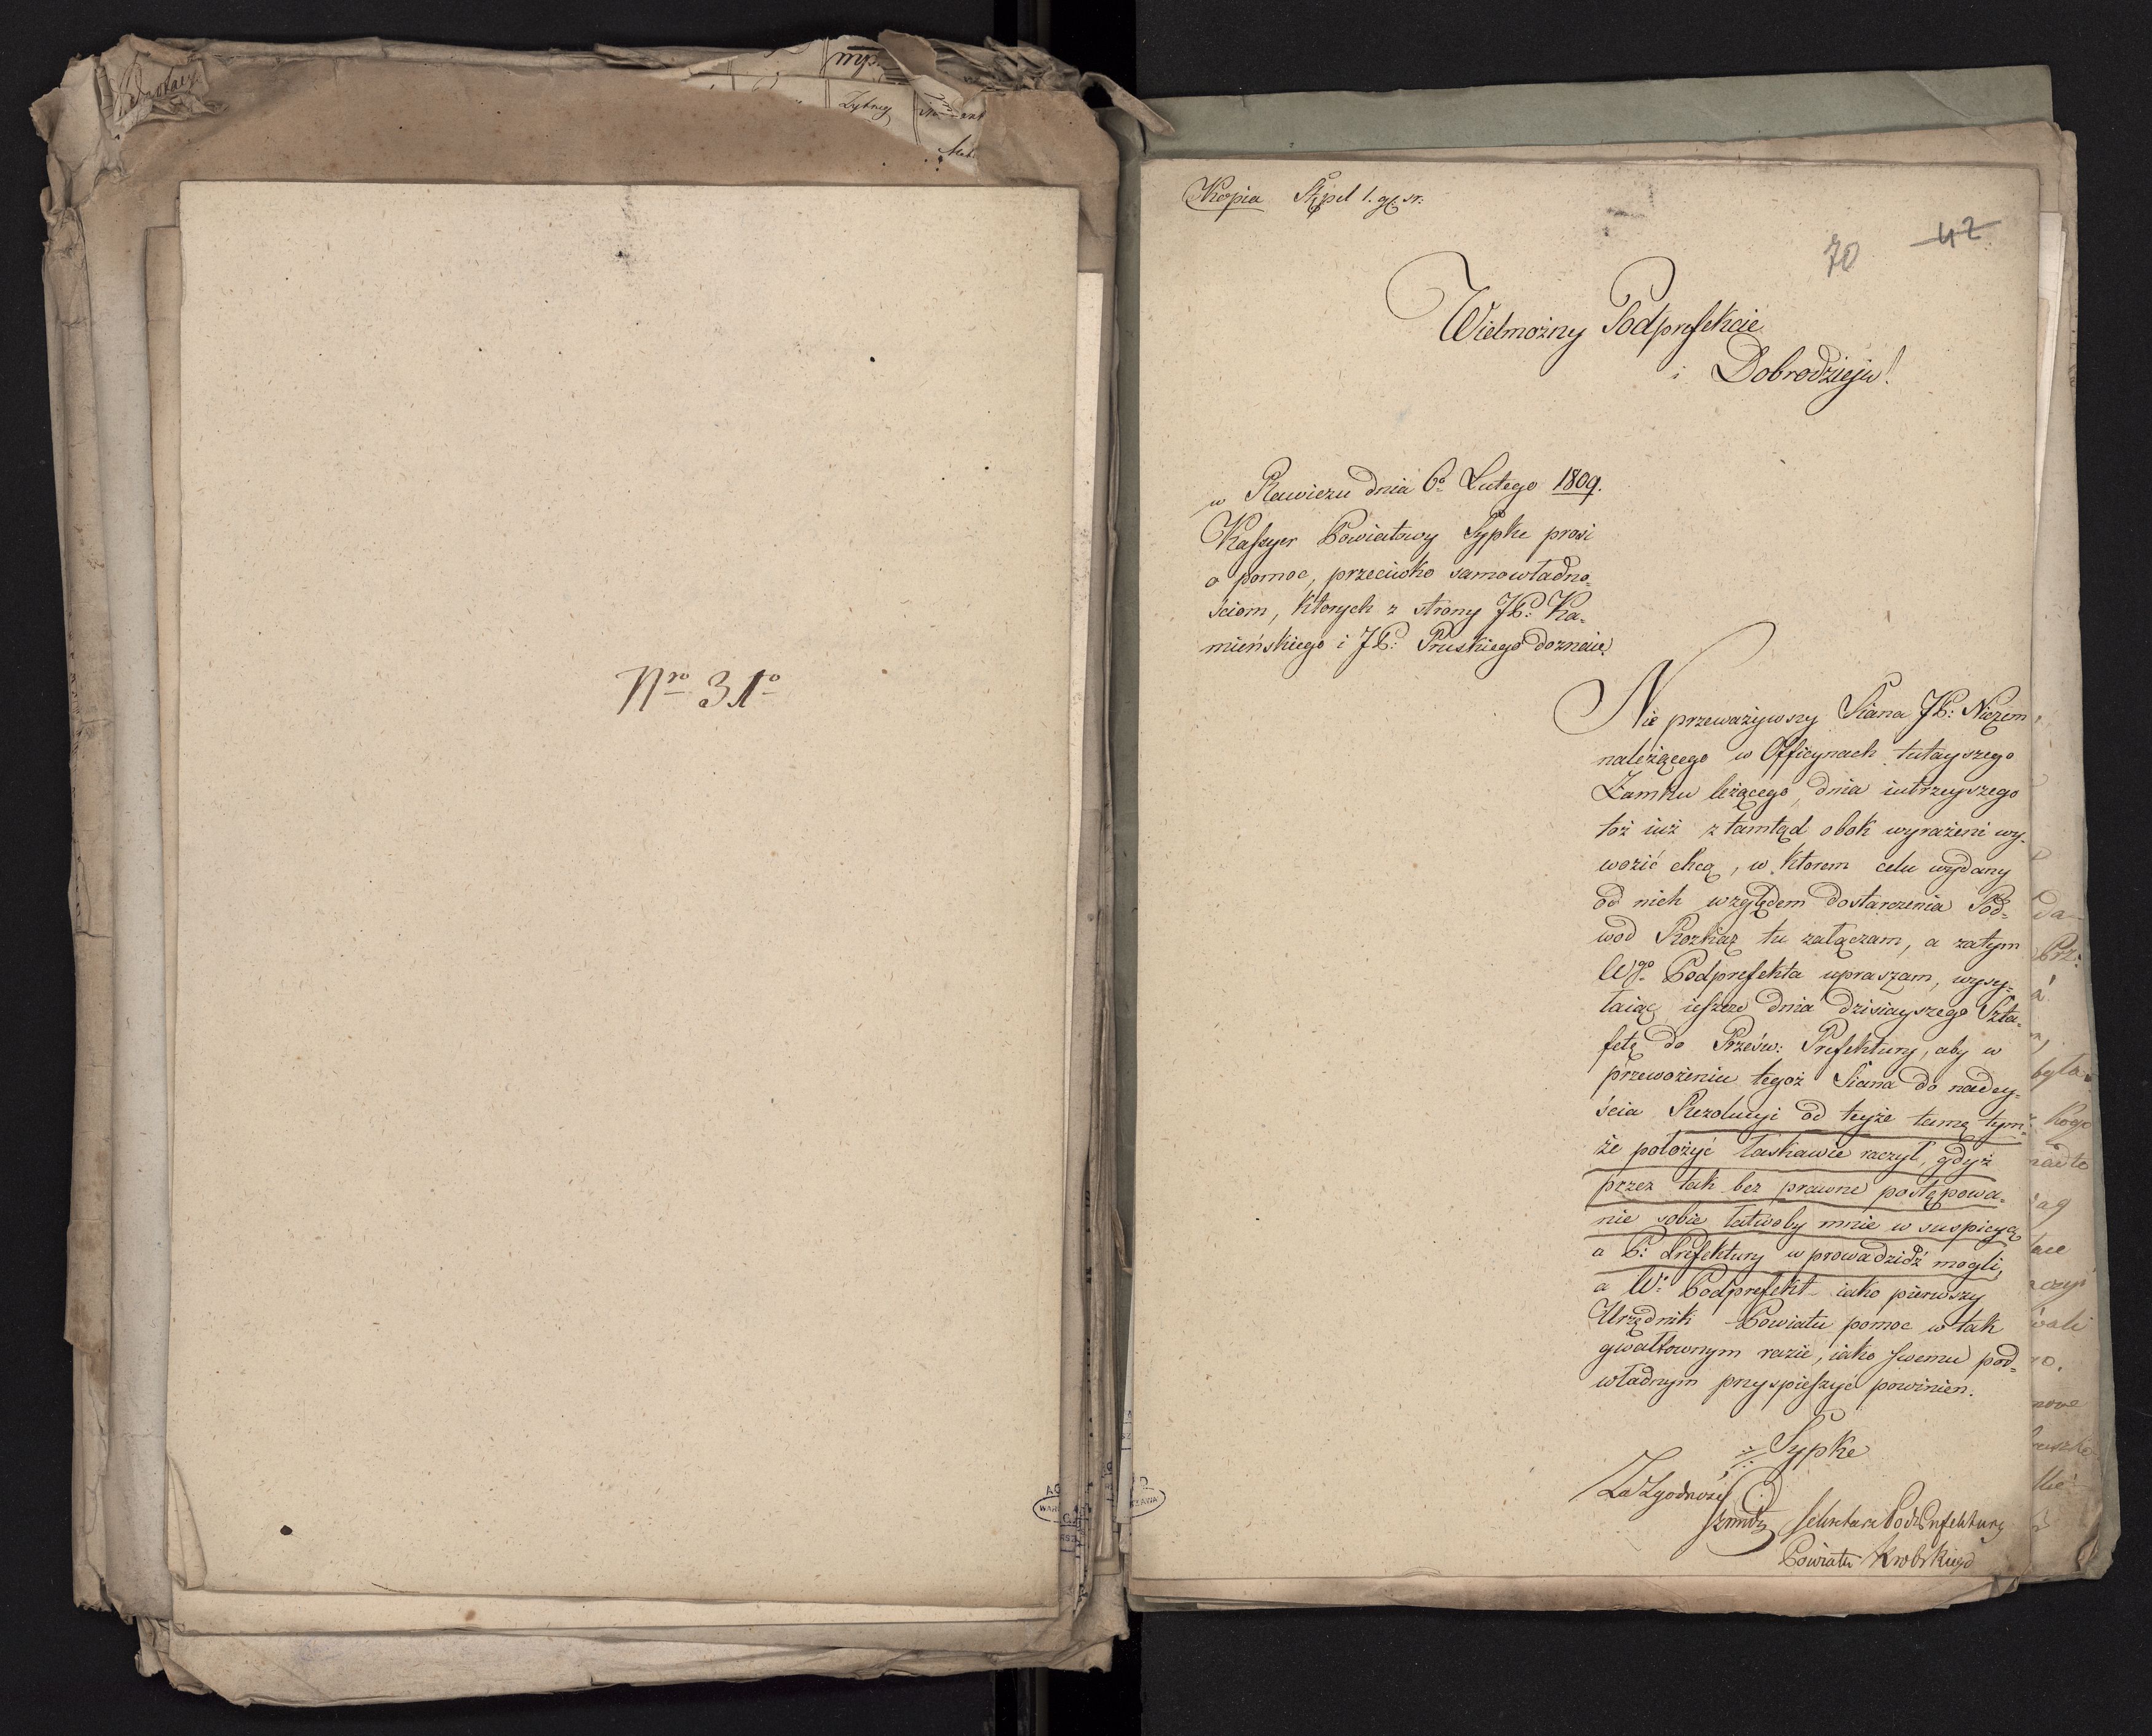 Nro 31o
Kopia Sztpel 1. gr. sr.
70 42
Wielmożny Podprefekcie
i Dobrodzieju!
w Rawiczu dnia 6o Lutego 1809.
Kaſsyer Powiatowy Sypke prosi
o pomoc, przeciwko samowładno=
ściom, ktorych z strony JP: Ka=
mieńskiego i JP: Pruskiego doznaie.
Nie przeważywszy Siana JP: Niczem
należącego w Officynach tutayszego
Zamku leżącego, dnia iutrzeyszego
toż iuż ztamtąd obok wyrażeni wy=
wozić chcą, w ktorem celu wydany
od nich względem dostarczenia Pod=
wod Rozkaz tu załączam, a zatym
Wgo Podprefekta upraszam, wysy=
łaiąc ieſzcze dnia dzisiayszego Szta=
fetę do Prześw: Prefektury, aby w
przewożeniu tegoż Siana do nadey=
ścia Rezolucyi od teyże tamę tym=
że położyć łaskawie raczył, gdyż
przez tak bez prawne postępowa=
nie sobie łatwoby mnie w suspicyą
a P: Prefektury wprowadzidź mogli,
a W: Podprefekt iako pierwszy
Urzędnik Powiatu pomoc w tak
gwałtownym razie, iako swemu pod=
władnym przyspieſzyć powinien.
Sypke
Za Zgodność
Szmidt Sekretarz Podprefektury
Powiatu Krobskiego